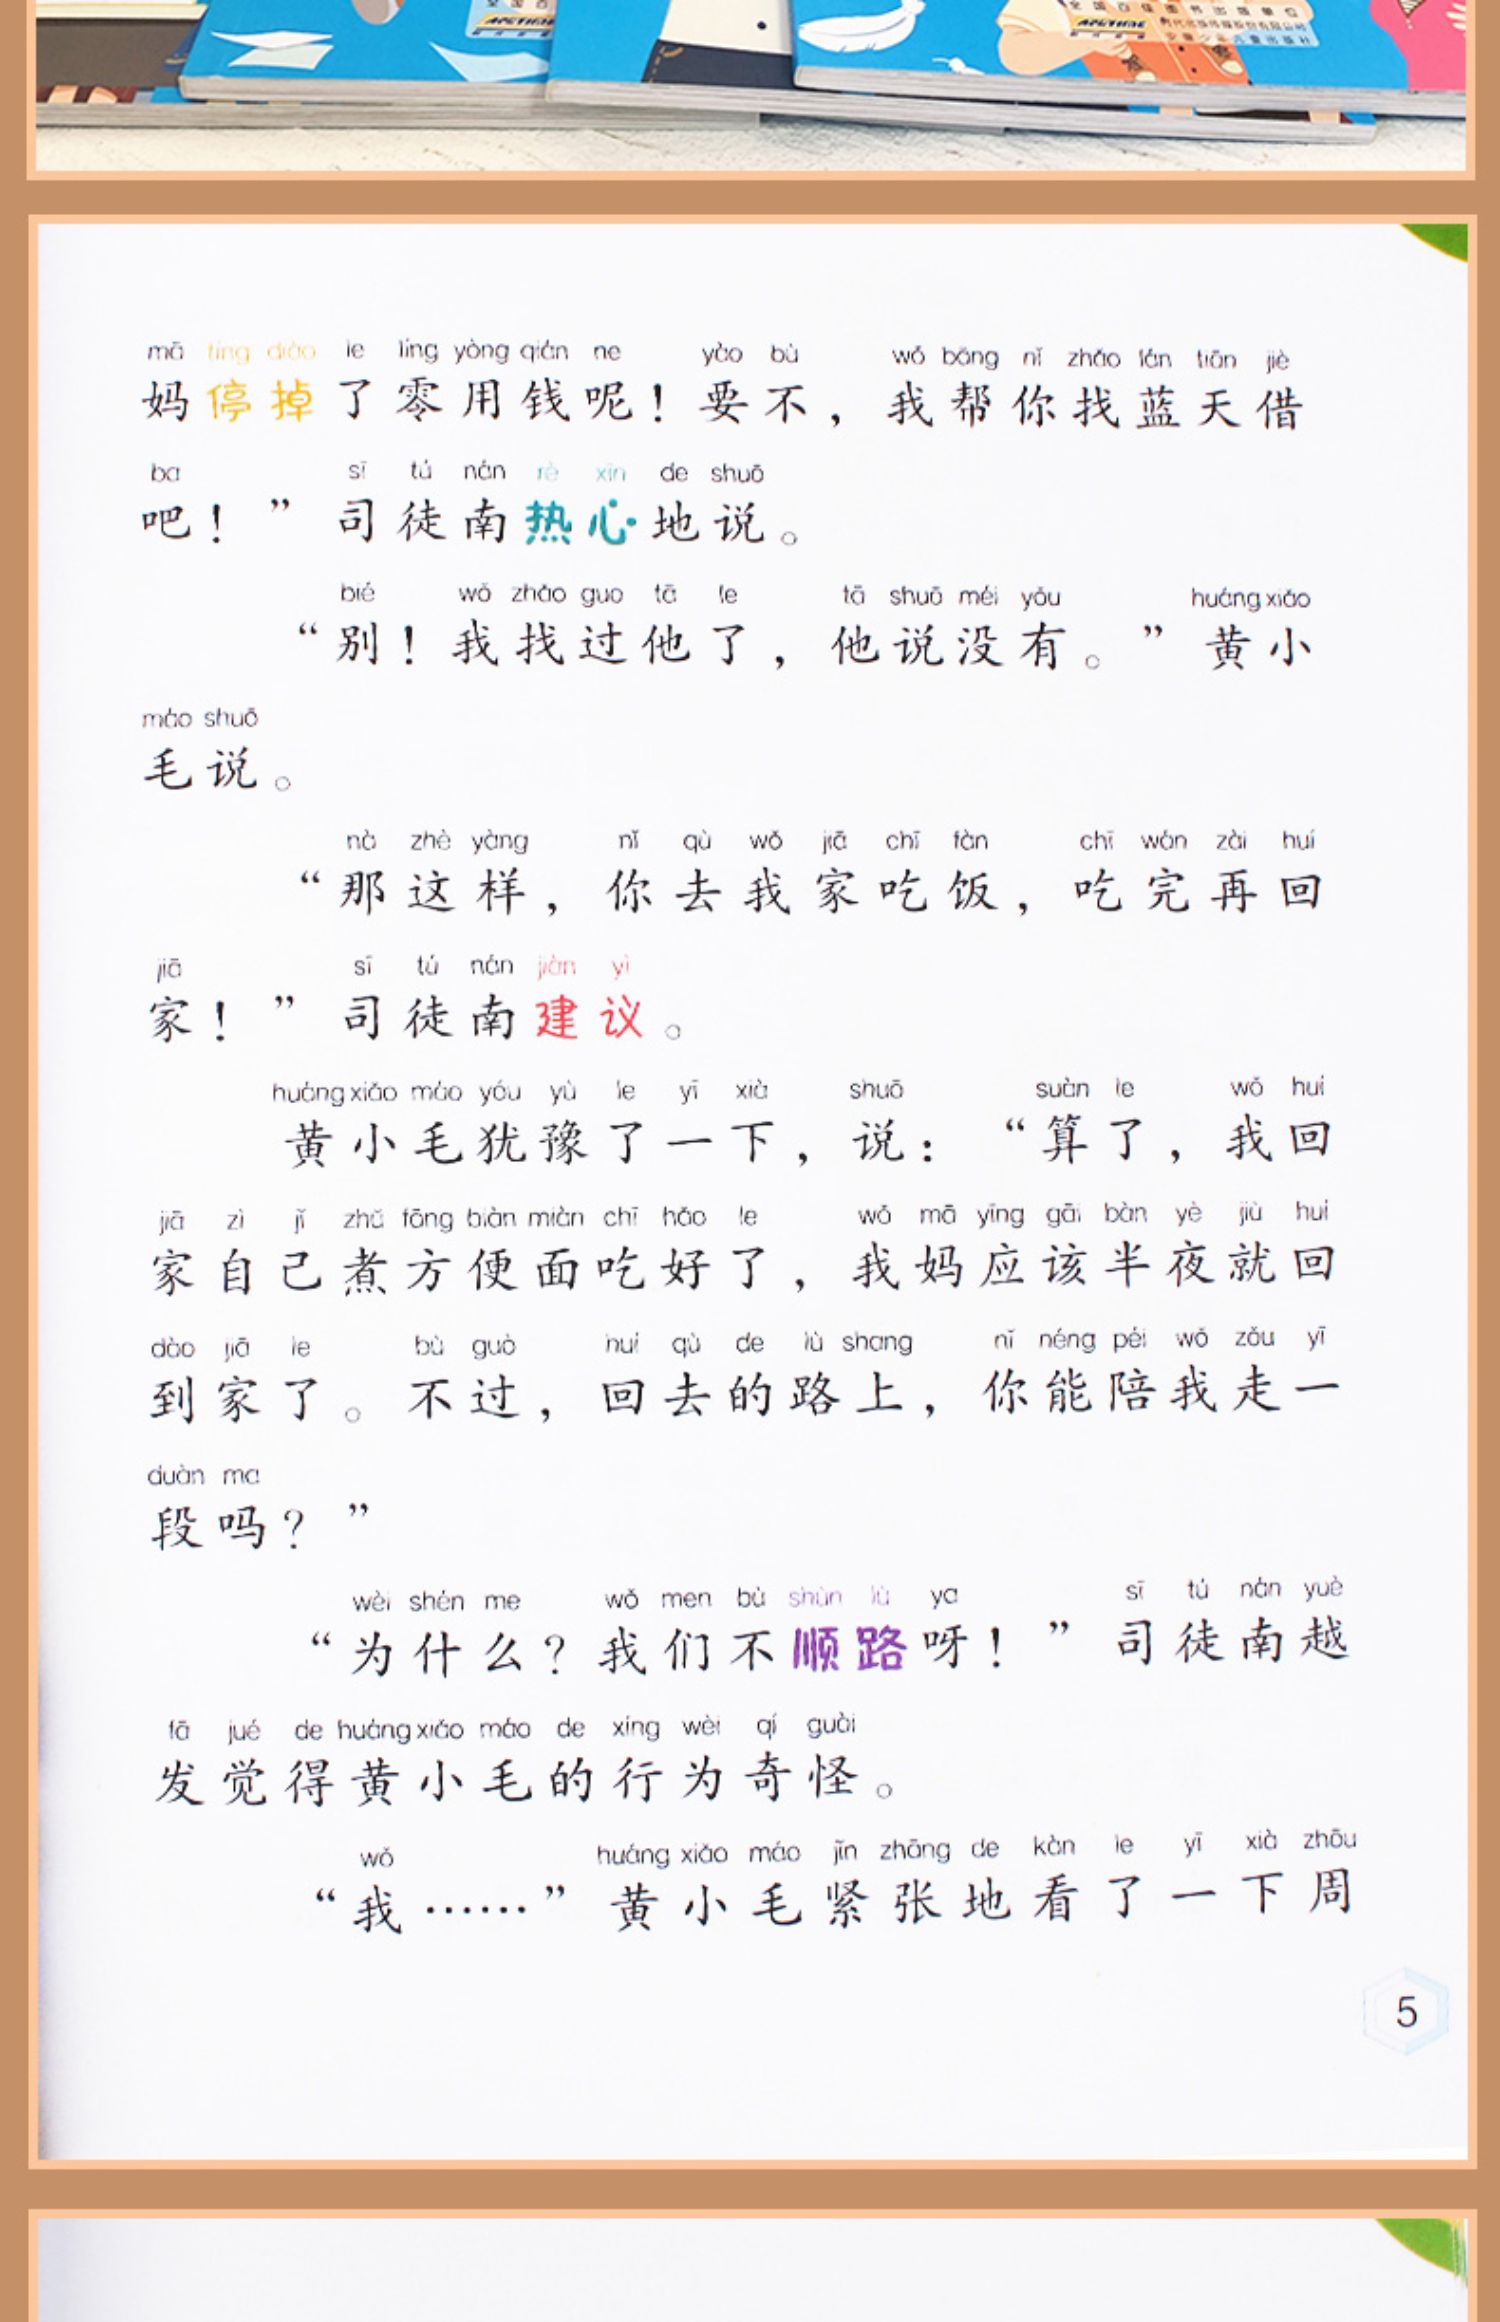 全国百佳图书出版单位
时代出版传媒股份有限公司
安徽少年儿童出版社
mā tíng diào le líng yòng qián ne yào bù wǒ bāng nǐ zhǎo lán tiān jiè
妈停掉了零用钱呢！要不，我帮你找蓝天借
ba sī tú nán rè xīn de shuō
吧！”司徒南热心地说。
bié wǒ zhǎo guo tā le tā shuō méi yǒu huáng xiǎo
“别！我找过他了，他说没有。”黄小
máo shuō
毛说。
nà zhè yàng nǐ qù wǒ jiā chī fàn chī wán zài huí
“那这样，你去我家吃饭，吃完再回
jiā sī tú nán jiàn yì
家！”司徒南建议。
huáng xiǎo máo yóu yù le yī xià shuō suàn le wǒ huí
黄小毛犹豫了一下，说：“算了，我回
jiā zì jǐ zhǔ fāng biàn miàn chī hǎo le wǒ mā yīng gāi bàn yè jiù huí
家自己煮方便面吃好了，我妈应该半夜就回
dào jiā le bù guò huí qù de lù shang nǐ néng péi wǒ zǒu yī
到家了。不过，回去的路上，你能陪我走一
duàn ma
段吗？”
wèi shén me wǒ men bù shùn lù ya sī tú nán yuè
“为什么？我们不顺路呀！”司徒南越
fā jué de huáng xiǎo máo de xíng wèi qí guài
发觉得黄小毛的行为奇怪。
wǒ huáng xiǎo máo jǐn zhāng de kàn le yī xià zhōu
“我……”黄小毛紧张地看了一下周
5